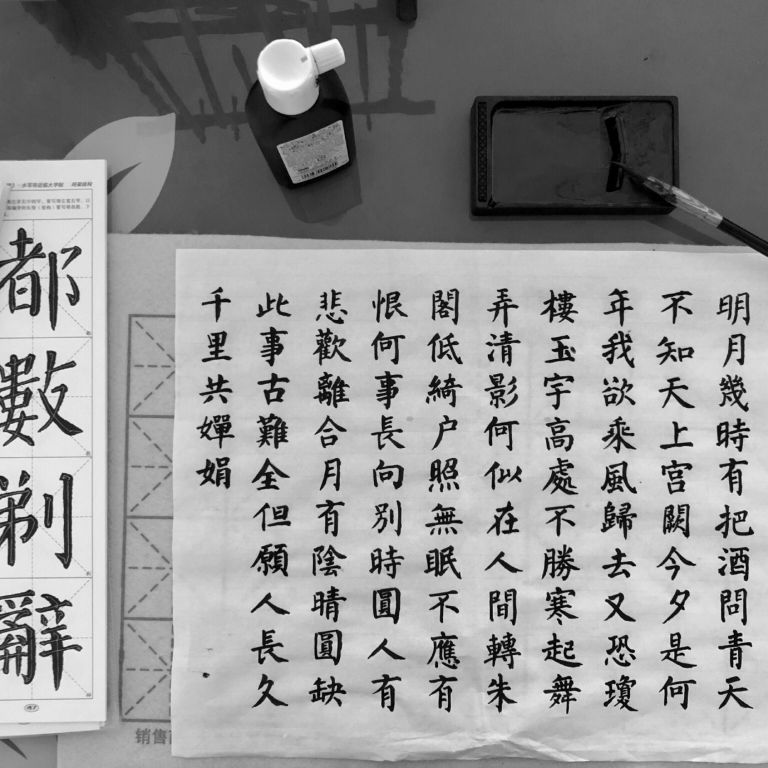 明月幾時有把酒問青天
不知天上宮闕今夕是何
年我欲乘風歸去又恐瓊
樓玉宇高處不勝寒起舞
弄清影何似在人間轉朱
閣低綺户照無眠不應有
恨何事長向别時圓人有
悲歡離合月有陰晴圓缺
此事古難全但願人長久
千里共嬋娟
都數剃辭
销售